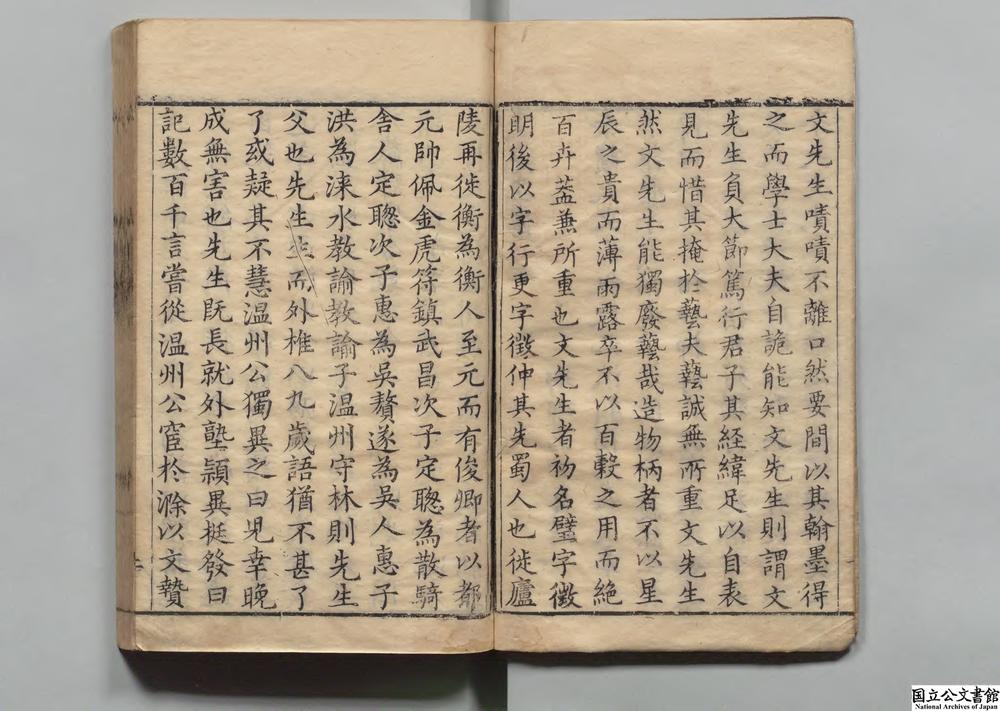 文先生嘖嘖不離口然要間以其翰墨得
之而學士大夫自詭能知文先生則謂文
先生負大節篤行君子其経緯足以自表
見而惜其掩於藝夫藝誠無所重文先生
然文先生能獨廢藝哉造物柄者不以星
辰之貴而薄雨露卒不以百糓之用而絶
百卉葢兼所重也文先生者初名璧字徵
明後以字行更字徵仲其先蜀人也徙廬
陵再徙衡為衡人至元而有俊卿者以都
元帥佩金虎符鎮武昌次子定聦為散騎
舎人定聦次子惠為吳贅遂為吳人惠子
洪為涞水教諭教諭子温州守林則先生
父也先生生而外椎八九歲語猶不甚了
了或疑其不慧温州公獨異之曰兒幸晚
成無害也先生既長就外塾頴異挺發曰
記數百千言嘗從温州公宦於滁以文贄
国立公文書館
National Archives of Japan